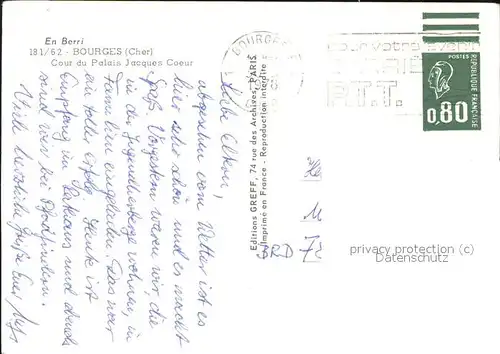 En Berri
181/62 - BOURGES (Cher)
Cour du Palais Jacques Coeur
Liebe Eltern!
abgesehen vom Wetter ist es
hier sehr schön und es macht
Spaß. Vorgestern waren wir, die
in der Jugendherberge wohnen, in
Familien eingeladen. Das war
ein voller Erfolg. Heute ist
Empfang im Rathaus und abends
sind wir bei Pfadfindern.
Viele Grüße Eure
Editions GREFF, 74 rue des Archives, PARIS
Imprimé en France - Reproduction interdite
BOURGES
pour votre avenir
P.T.T.
POSTES
REPUBLIQUE FRANÇAISE
0,80
BRD
privacy protection (c)
Datenschutz